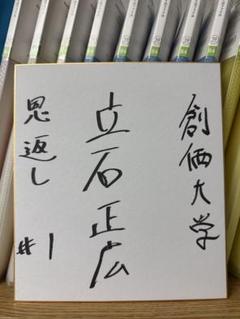 創価大学
立石正広
恩返し #1